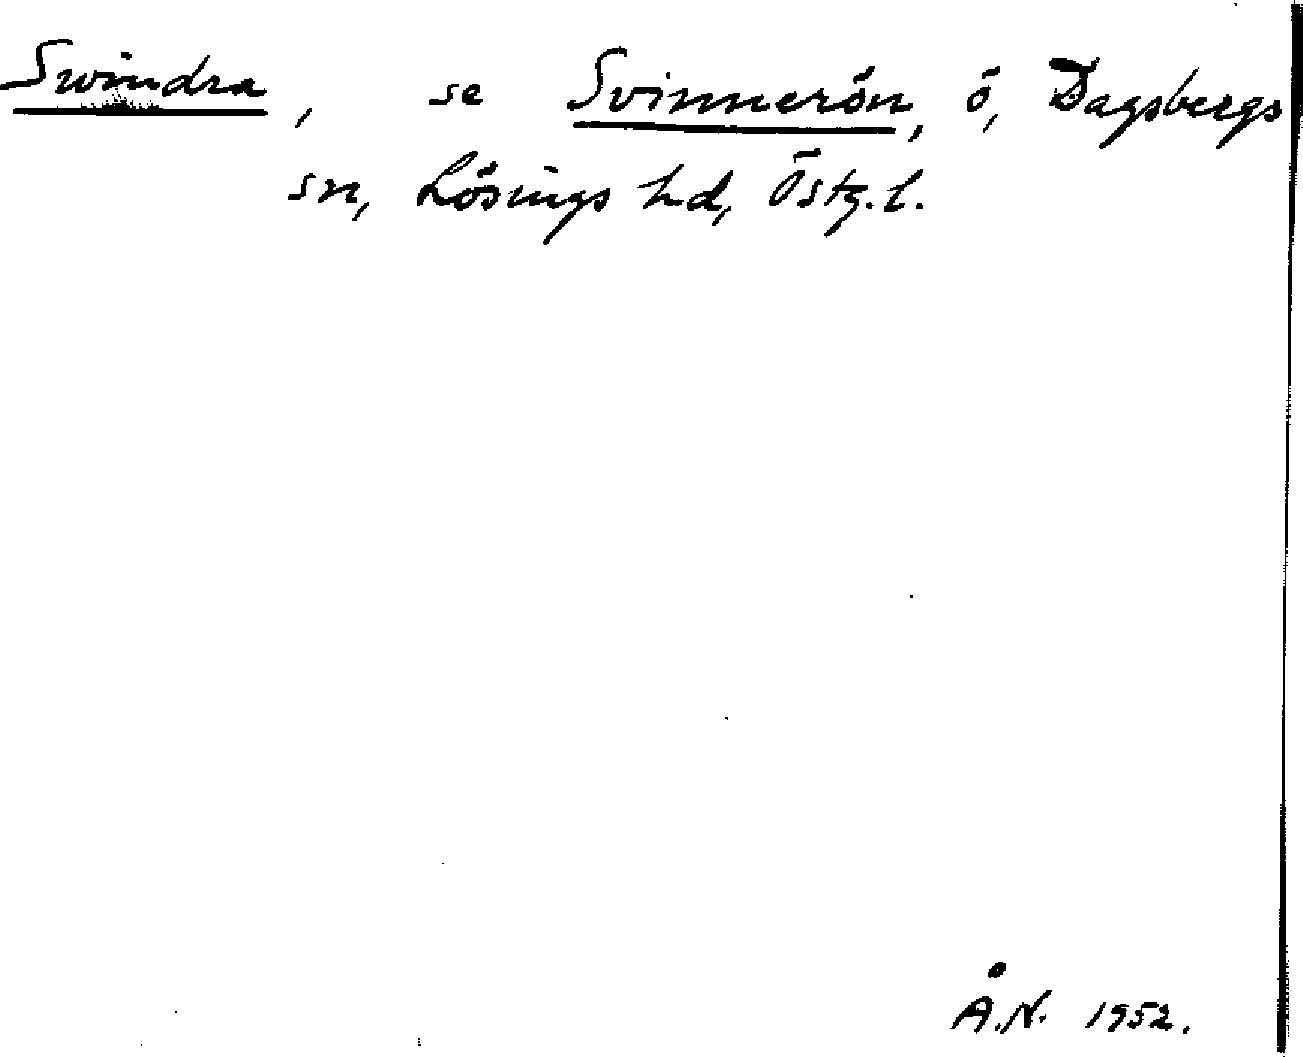 Swindra, se Svinnerön, ö, Dagsbergs
sn, Lösings hd, Östg.l.
Å.N. 1952.